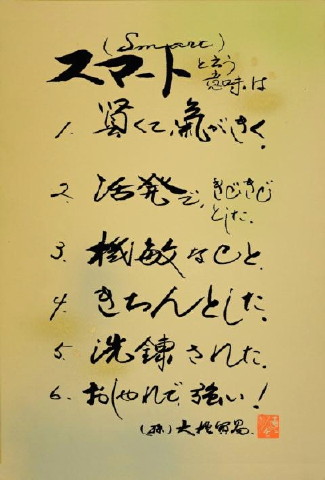 (Smart)
スマートと云う意味は
1. 賢くて、氣がきく、
2. 活発で、きびきびとした、
3. 機敏なこと、
4. きちんとした、
5. 洗錬された、
6. おしゃれで、強い!
(株)大